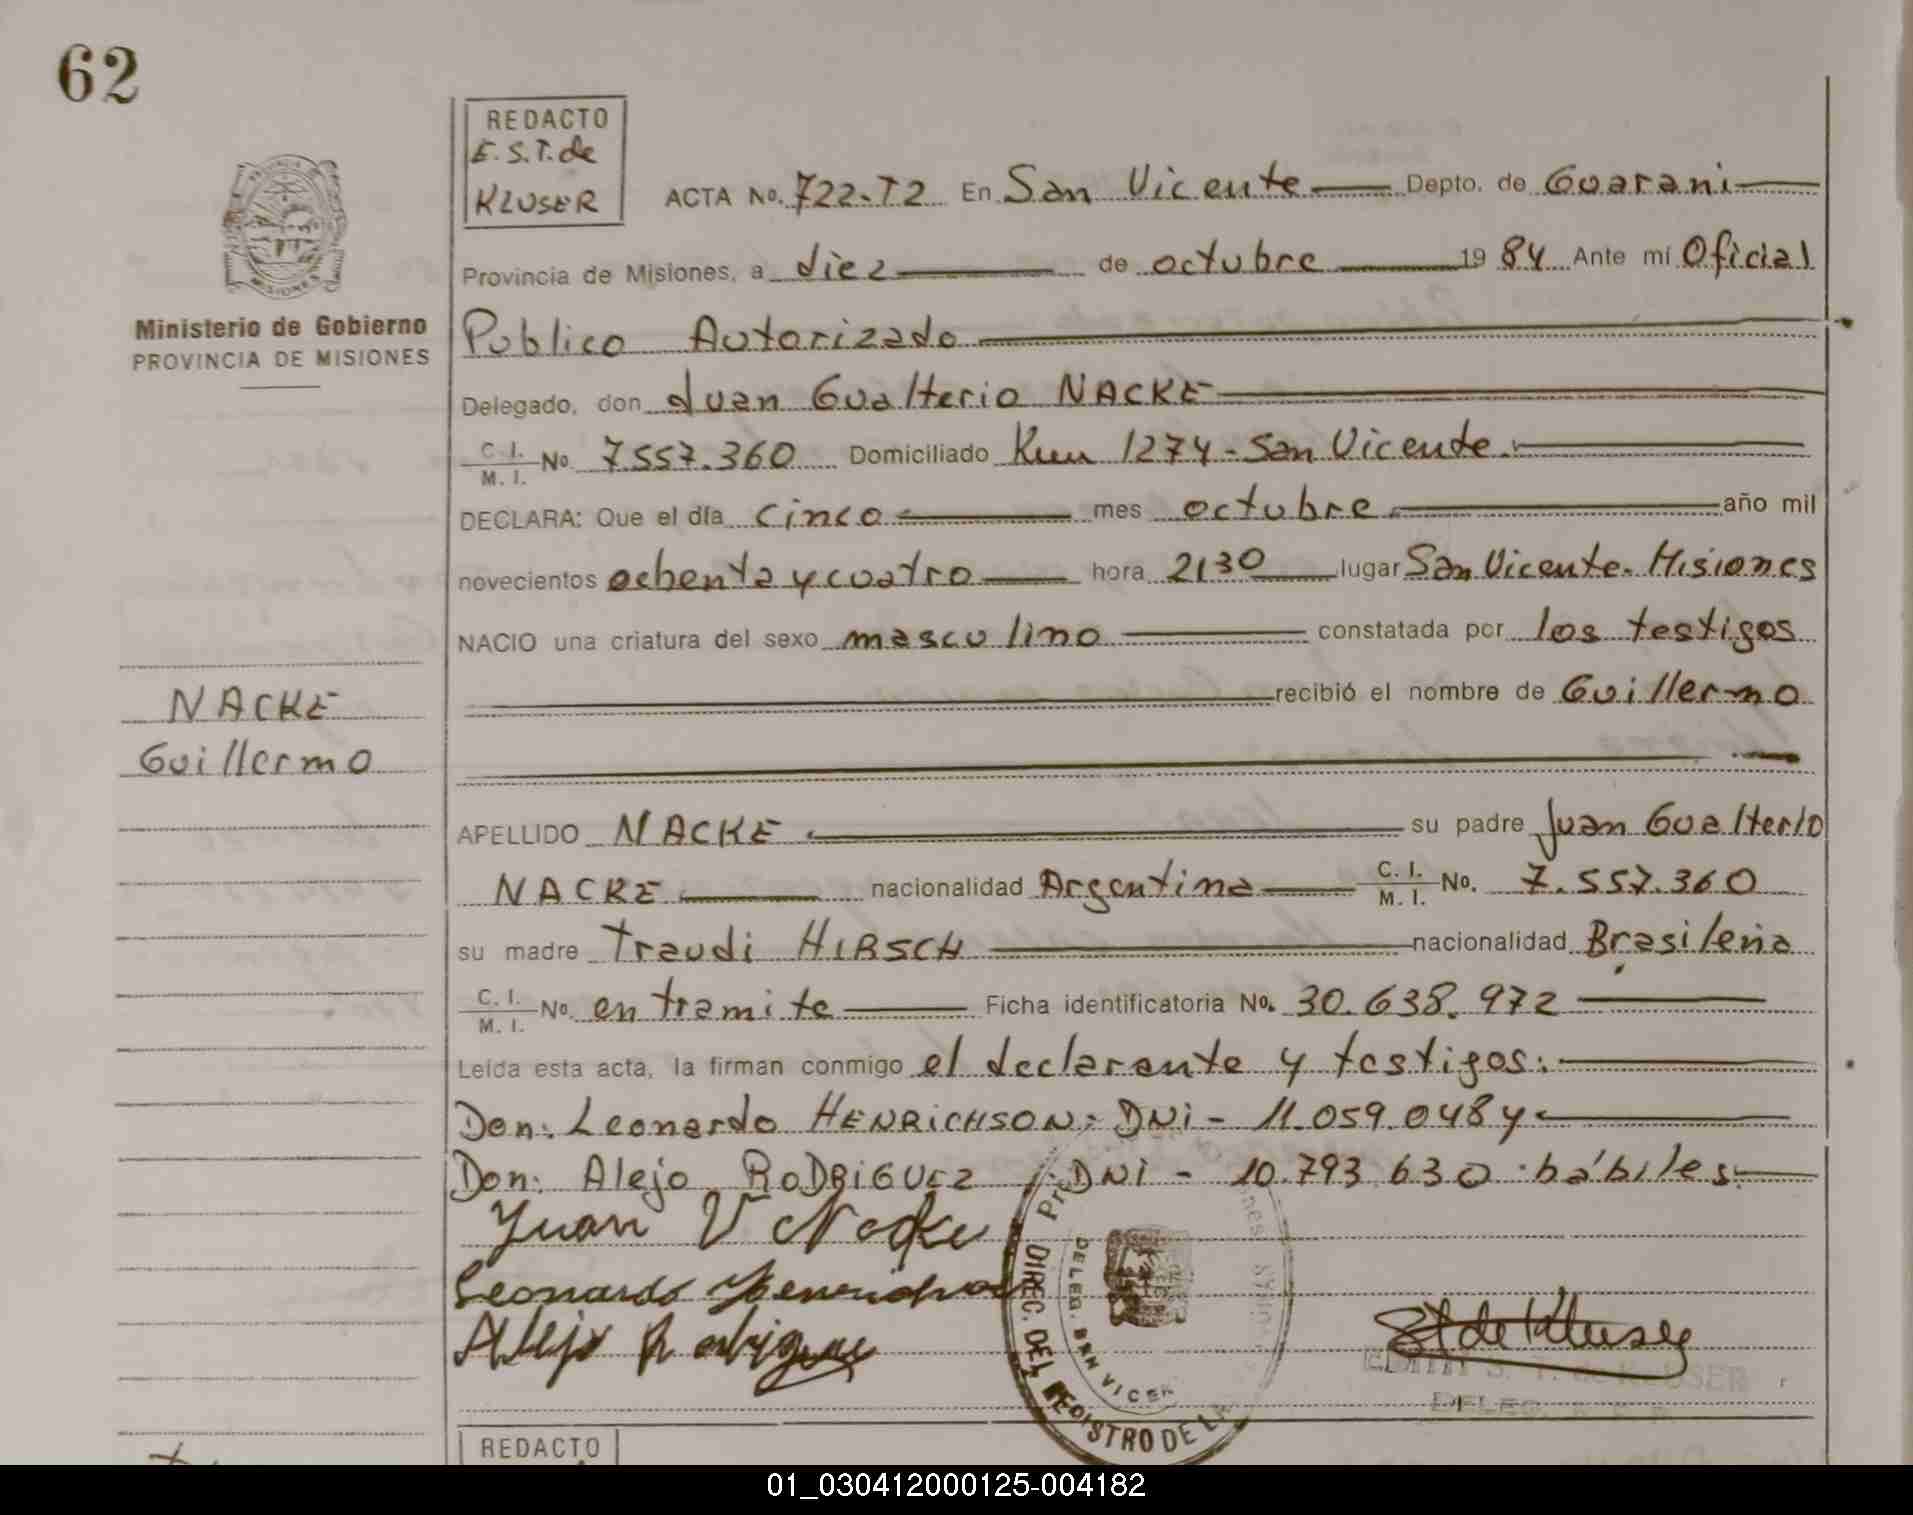 62
REDACTO
E.S.T. de
KLUSER
ACTA No. 722-T2 En San Vicente Depto. de Guarani
Provincia de Misiones, a diez de octubre 1984 Ante mí Oficial
Ministerio de Gobierno
PROVINCIA DE MISIONES
Publico Autorizado
Delegado, don Juan Gualterio NACKE
C. I. M. I. No 7557.360 Domiciliado Km 1274 - San Vicente.
DECLARA: Que el día cinco mes octubre año mil
novecientos ochenta y cuatro hora 2130 lugar San Vicente. Misiones
NACIO una criatura del sexo masculino constatada por los testigos
recibió el nombre de Guillermo
NACKE
Guillermo
APELLIDO NACKE su padre Juan Gualterio
NACKE nacionalidad Argentina C. I. M. I. No. 7.557.360
su madre Traudi HIRSCH nacionalidad Brasileña
C. I. M. I. No. en tramite Ficha identificatoria No. 30.638.972
Leída esta acta, la firman conmigo el declarante y testigos:
Don: Leonardo HENRICHSON: DNi - 11.059.048 y
Don: Alejo RODRIGUEZ DNi - 10.793.630 hábiles.
Juan Nacke
Leonardo
Alejo Rodriguez
DIREC. DEL REGISTRO DE LA
DELEG. SAN VICEN
ET de Kluser
EDITH S. T. de KLUSER
DELEG.
REDACTO
01_030412000125-004182